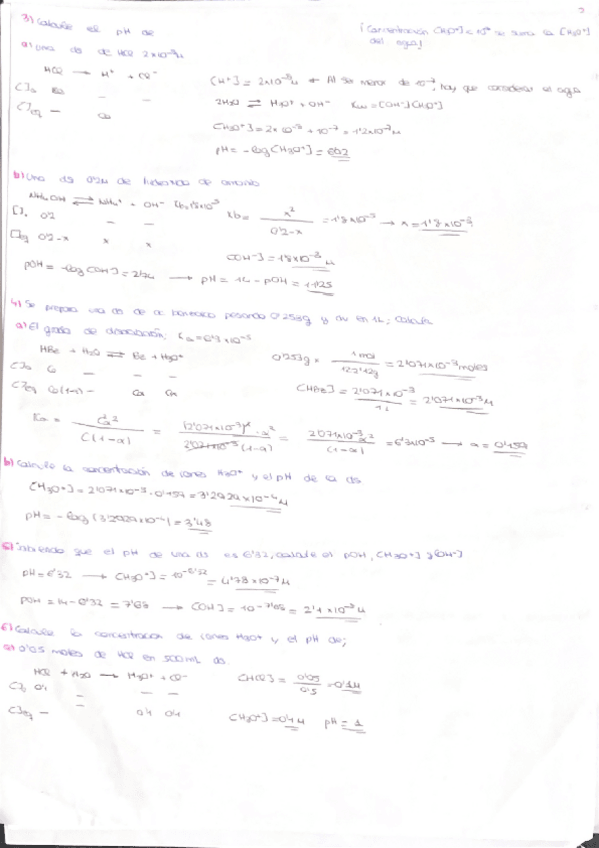 2
3) Calcule el pH de
¡Concentración [H3O+] < 10 se suma la [H3O+] del agua!
a) Una ds de HCl 2x10-8M
HCl → H+ + Cl-
[ ]o — —
[ ]eq —
[H+] = 2x10-8M Al ser menor de 10-7, hay que considerar el agua
2H2O ⇌ H3O+ + OH- Kw = [OH-][H3O+]
[H3O+] = 2x10-8 + 10-7 = 1'2x10-7M
pH = -log[H3O+] = 6'92
b) Una ds 0'2M de hidróxido de amonio
NH4OH ⇌ NH4+ + OH- Kb=1'8x10-5
[ ]o 0'2 — —
[ ]eq 0'2-x x x
Kb = x² / 0'2-x = 1'8x10-5 → x = 1'8x10-3
[OH-] = 1'8x10-3 M
pOH = -log[OH-] = 2'74 → pH = 14 - pOH = 11'25
4) Se prepara una ds de ac benzoico pesando 0'253g y en 1L; Calcula
a) El grado de disociación; Ka=6'3x10-5
HBz + H2O ⇌ Bz + H3O+
[ ]o Co — — —
[ ]eq Co(1-α) — Cα Cα
0'253g x 1mol / 122'12g = 2'071x10-3 moles
[HBz] = 2'071x10-3 / 1L = 2'071x10-3M
Ka = Cα² / C(1-α) = (2'071x10-3)² · α² / 2'071x10-3 (1-α) = 2'071x10-3 α² / (1-α) = 6'3x10-5 → α = 0'159
b) Calcule la concentración de iones H3O+ y el pH de la ds
[H3O+] = 2'071x10-3 · 0'159 = 3'2929x10-4M
pH = -log(3'2929x10-4) = 3'48
5) Sabiendo que el pH de una ds es 6'32, calcule el pOH, [H3O+] y [OH-]
pH = 6'32 → [H3O+] = 10-6'32 = 4'78x10-7M
pOH = 14 - 6'32 = 7'68 → [OH-] = 10-7'68 = 2'1x10-8M
6) Calcule la concentración de iones H3O+ y el pH de;
a) 0'05 moles de HCl en 500mL ds
HCl + H2O → H3O+ + Cl-
[ ]o 0'1 — — —
[ ]eq — — 0'1 0'1
[HCl] = 0'05 / 0'5 = 0'1M
[H3O+] = 0'1M pH = 1